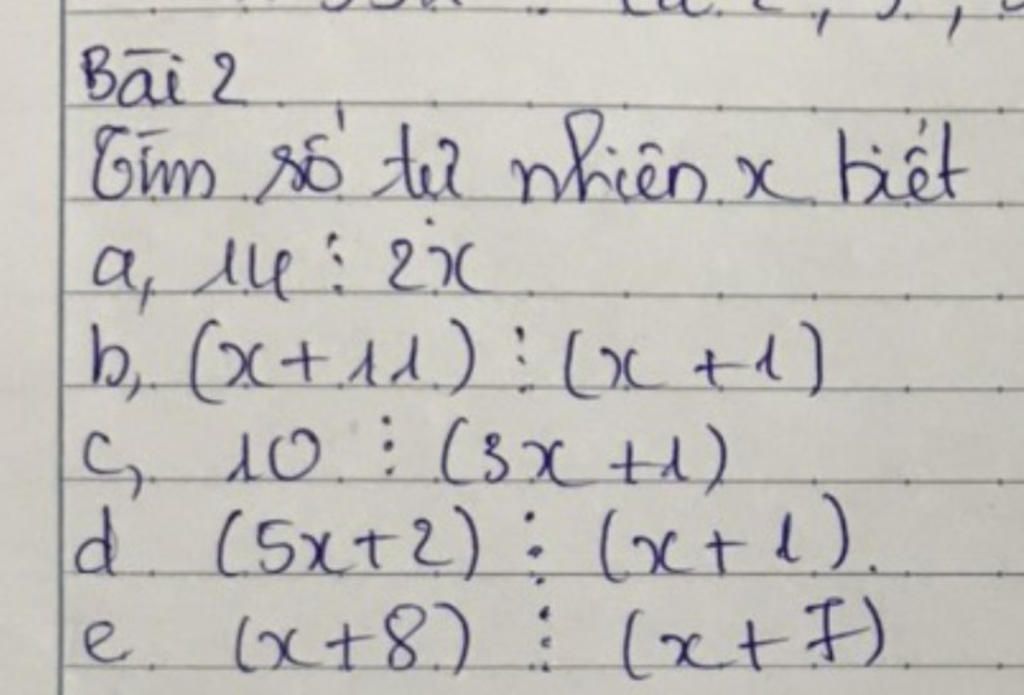 Bài 2
Tìm số tự nhiên x biết
a, 14 ⋮ 2x
b, (x + 11) ⋮ (x + 1)
c, 10 ⋮ (3x + 1)
d (5x + 2) ⋮ (x + 1).
e (x + 8) ⋮ (x + 7)